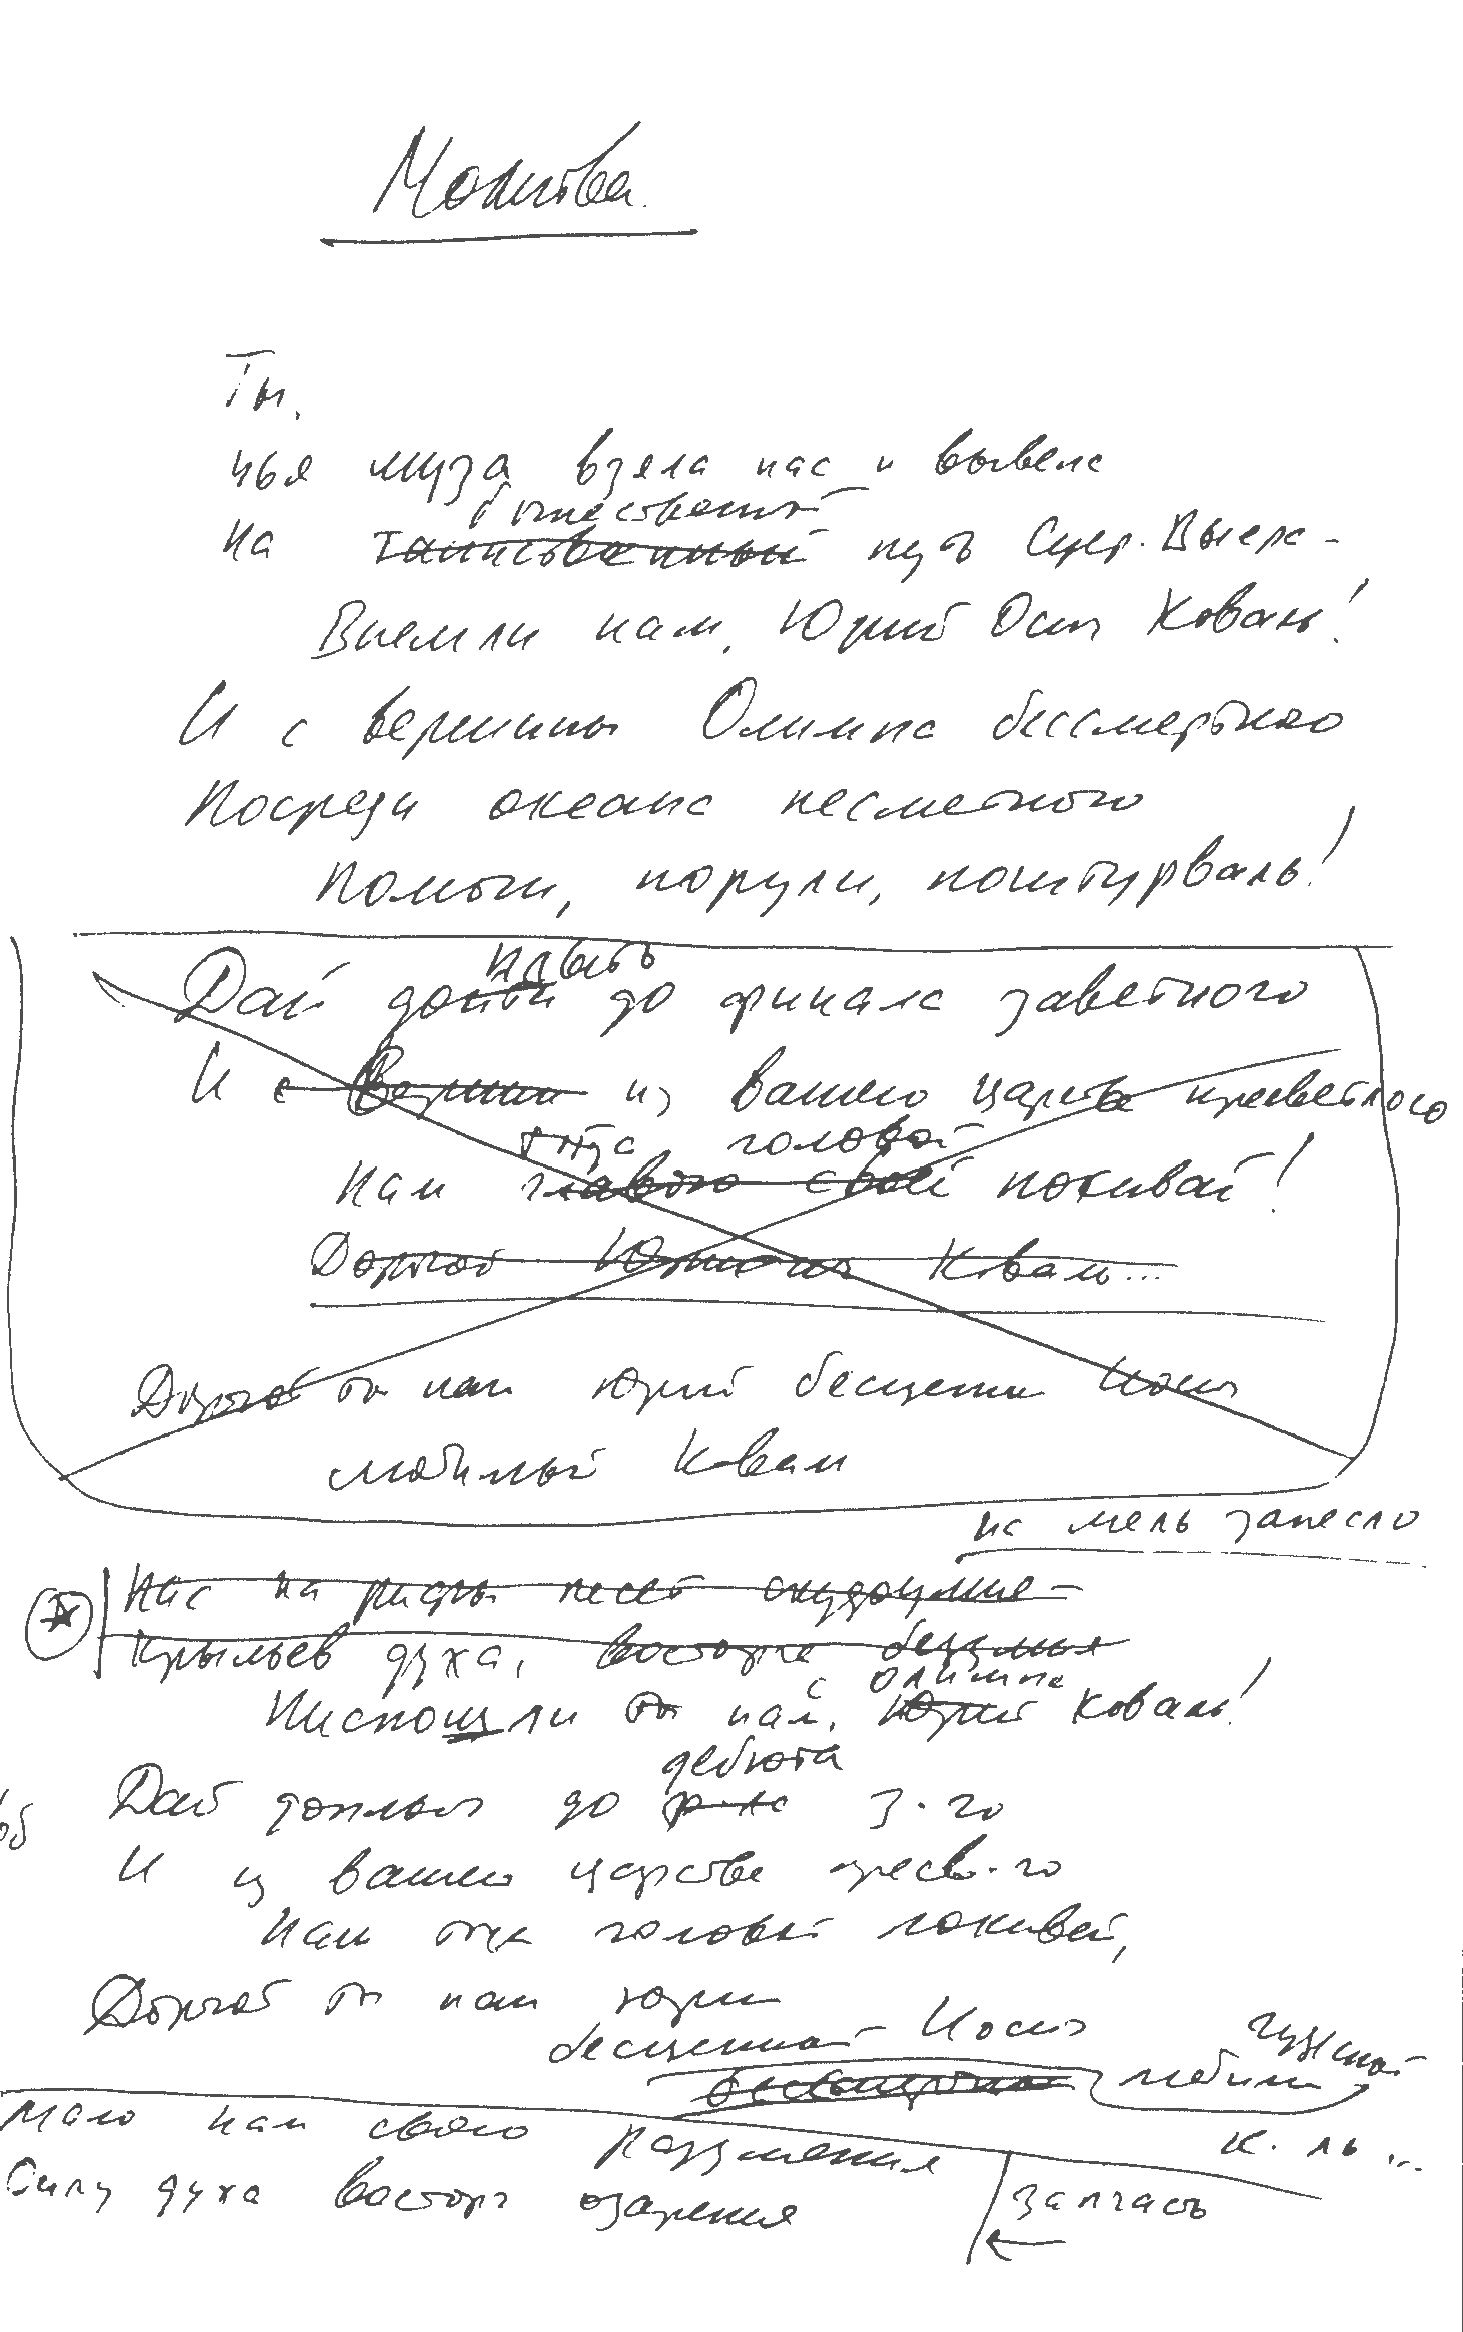 Молитва.
Ты,
чья муза взяла нас и вывела
божественный
на таинственный путь Суер-Выера -
Внемли нам, Юрий Осич Коваль!
И с вершины Олимпа бессмертного
Посреди океана несметного
Помоги, порули, поштурваль!
плыть
Дай дойти до финала заветного
И с вершин из вашего царства пресветлого
оттуда головой
Нам главою своей покивай!
Дорогой Юрий Осич Коваль...
Дорогой ты наш Юрий бесценный Иосич
любимый Коваль
на мель занесло
Нас на рифы несет скудоумие -
Крыльев духа, восторга безумия
с олимпа
Ниспошли ты нам, Юрий Коваль!
дебюта
Дай доплыть до з-го
И из вашего царства пресв-го
Нам оттуда головой покивай,
Дорогой ты наш Юрий
бесценной Иосич
любимый
К. ль ...
Мало нам своего разумения
Силу духа восторг озарения
запчасть